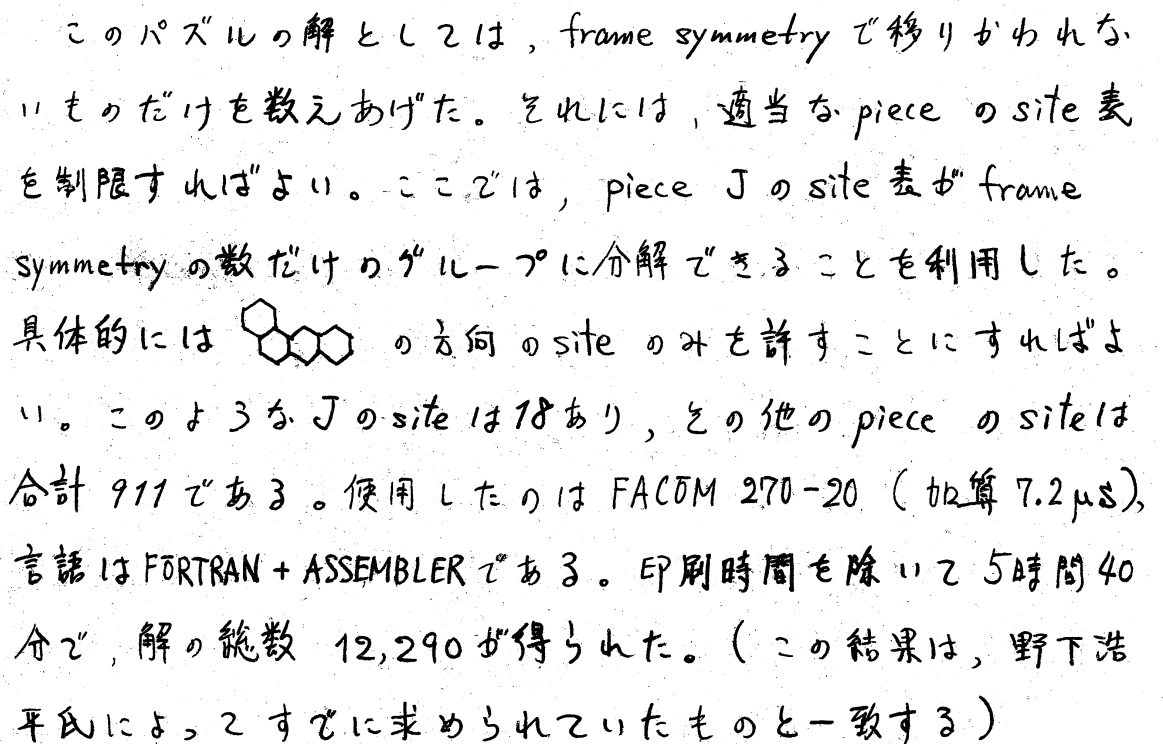 このパズルの解としては, frame symmetryで移りかわれな
いものだけを数えあげた。それには, 適当なpieceのsite表
を制限すればよい。ここでは, piece Jのsite表がframe
symmetryの数だけのグループに分解できることを利用した。
具体的には の方向のsiteのみを許すことにすればよ
い。このようなJのsiteは18あり, その他のpieceのsiteは
合計 911である。使用したのはFACOM 270-20 (加算 7.2μs),
言語はFORTRAN + ASSEMBLERである。印刷時間を除いて5時間40
分で, 解の総数 12,290が得られた。(この結果は, 野下浩
平氏によってすでに求められていたものと一致する)